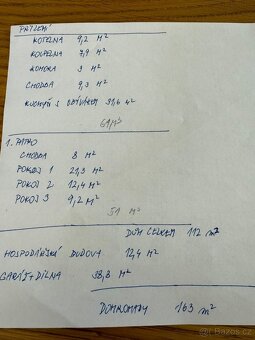 PŘÍZEMÍ
KOTELNA 9,2 M²
KOUPELNA 7,9 M²
KOMORA 3 M²
CHODBA 9,3 M²
KUCHYŇ S OBÝVÁKEM 31,6 M²
61 M²
1. PATRO
CHODBA 8 M²
POKOJ 1 21,3 M²
POKOJ 2 12,4 M²
POKOJ 3 9,2 M²
51 M²
DŮM CELKEM 112 m²
HOSPODÁŘSKÁ BUDOVA 12,4 M²
GARÁŽ + DÍLNA 38,8 M²
DOHROMADY 163 m²
© Sbazar.cz